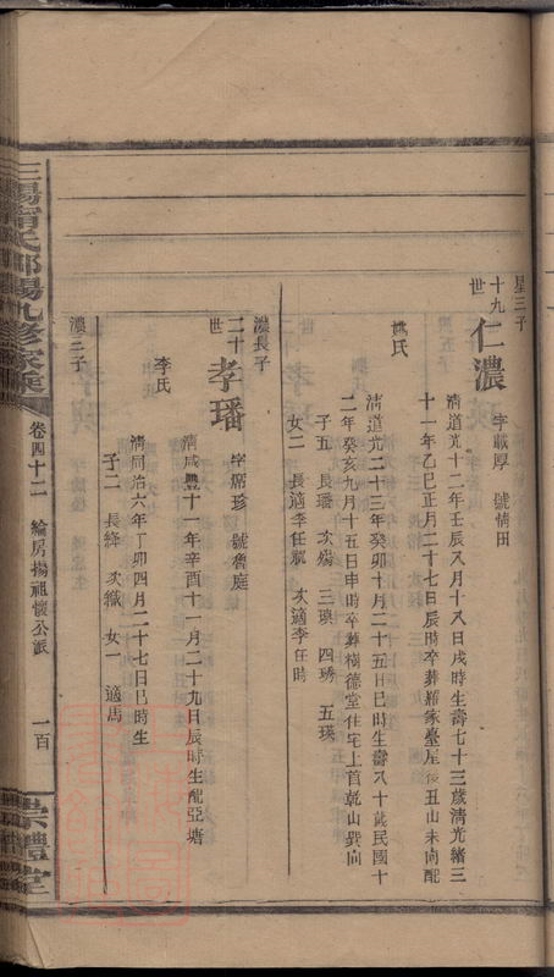 星三子
十九世 仁濃 字載厚 號情田
清道光十二年壬辰八月十八日戌時生壽七十三歲清光緒三
十一年乙巳正月二十七日辰時卒葬羅家臺屋後丑山未向配
姚氏
清道光二十三年癸卯十月二十五日巳時生壽八十歲民國十
二年癸亥九月十五日申時卒葬樹德堂住宅上首乾山巽向
子五 長璠 次 三璵 四琇 五瑛
女二 長適李任 次適李任時
濃長子
二十世 孝璠 字席珍 號魯庭
清咸豐十一年辛酉十一月二十九日辰時生配亞塘
李氏
清同治六年丁卯四月二十七日巳時生
子二 長絳 次織 女一 適馬
濃三子
三陽甯氏邵陽九修家乘
卷四十二 綸房揚祖懷公派 一百
崇禮堂